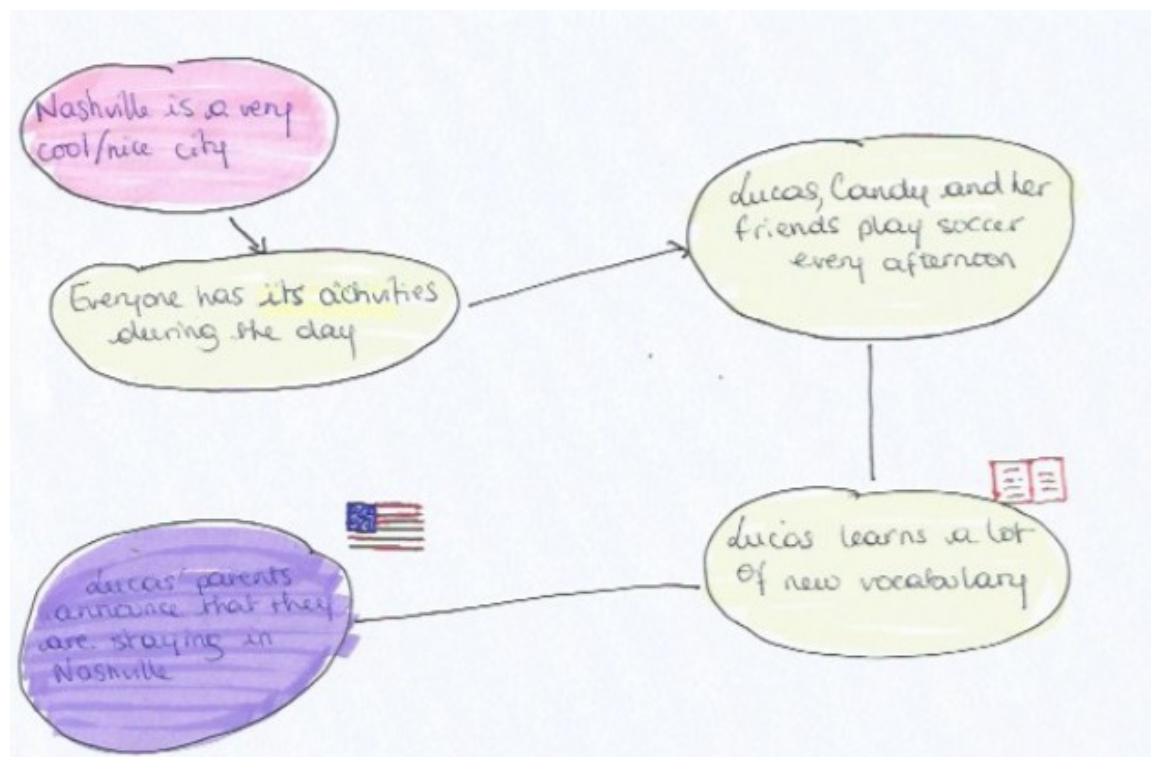 Nashville is a very
cool/nice city
Everyone has its activities
during the day
Lucas, Candy and her
friends play soccer
every afternoon
Lucas learns a lot
of new vocabulary
Lucas' parents
annonce that they
are staying in
Nashville